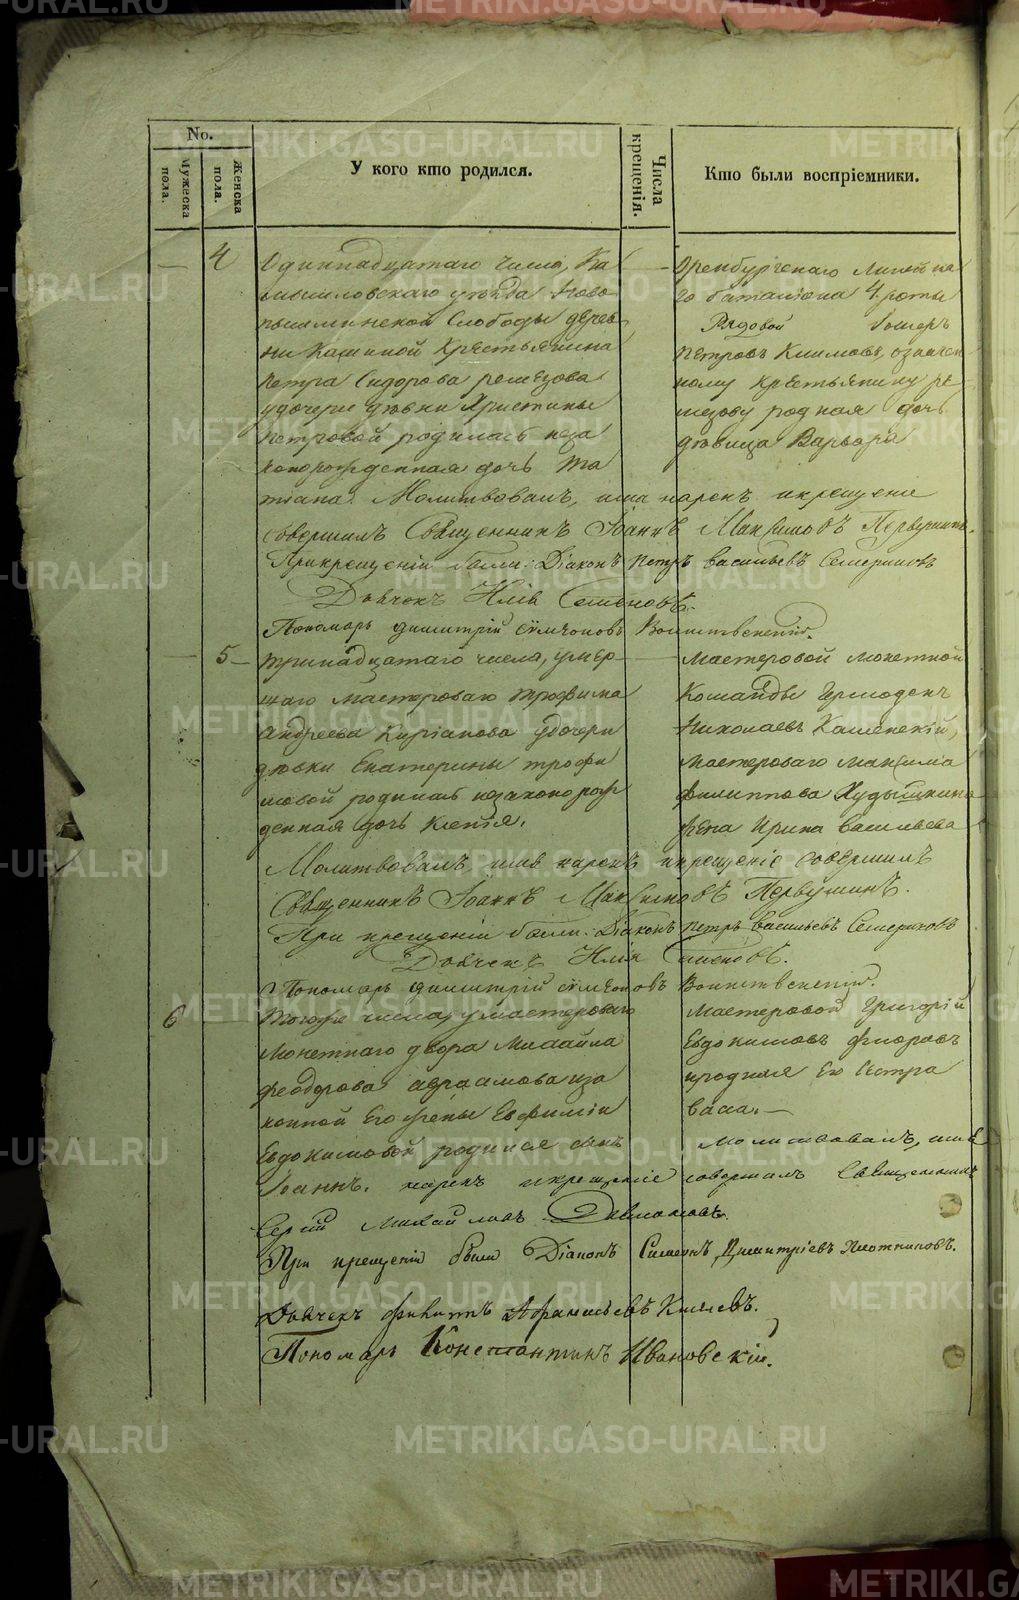 No.
Мужеска пола.
Женска пола.
У кого кто родился.
Числа крещенія.
Кто были воспріемники.
4
Одиннадцатаго числа, Ка
мышловскаго уѣзда Ново
пышминской Слободы дерев
ни Кашиной Крестьянина
Петра Сидорова
у дочери дѣвки Христины
Петровой родилась неза
конорожденная дочь Та
тіана. Молитвовалъ, имя нарекъ и крещеніе
Оренбургскаго Линейна
го баталіона 4 роты
Рядовой
Петровъ Климовъ, означен
ному крестьянину Ре
родная дочь
дѣвица Варвара
совершилъ Священникъ Іоаннъ Максимовъ Первушинъ.
При крещеніи были: Діаконъ Петръ Васильевъ Семериковъ
Дьячекъ Илія Семеновъ.
Пономарь Димитрій Симеоновъ Воинственскій.
5
Тринадцатаго числа, умер
шаго мастероваго Трофима
Андреева Кирьанова у дочери
дѣвки Екатерины Трофи
мовой родилась незаконорож
денная дочь Ксенія.
Мастеровой монетной
Команды
Николаевъ Каменскій,
мастероваго Максима
Филиппова Худышкина
жена Ирина Васильева
Молитвовалъ, имя нарекъ и крещеніе совершилъ
Священникъ Іоаннъ Максимовъ Первушинъ.
При крещеніи были: Діаконъ Петръ Васильевъ Семериковъ
Дьячекъ Илія Семеновъ.
Пономарь Димитрій Симеоновъ Воинственскій.
6
Тогоже числа, у мастероваго
Монетнаго двора Михайла
Феодорова Авраамова и за
конной Его жены Евфиміи
Евдокимовой родился сынъ
Мастеровой Григорій
Евдокимовъ
и родная Его Сестра
Молитвовалъ, имя
Іоаннъ. нарекъ и крещеніе совершилъ Священникъ
Сергій Михайловъ
При крещеніи были Діаконъ Симеонъ Димитріевъ Плотниковъ.
Дьячекъ Филиппъ Афанасьевъ
Пономарь Константинъ Ивановскій.
METRIKI.GASO-URAL.RU